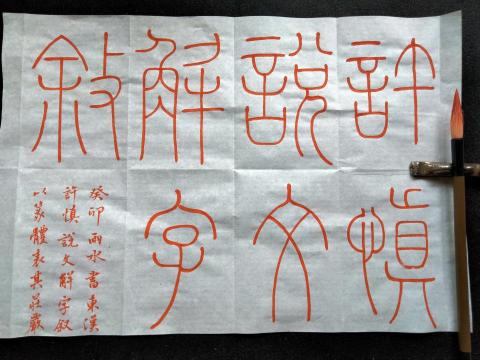 許慎
說文
解字
敘
癸卯雨水書東漢
許慎說文解字叙
以篆體表其莊嚴